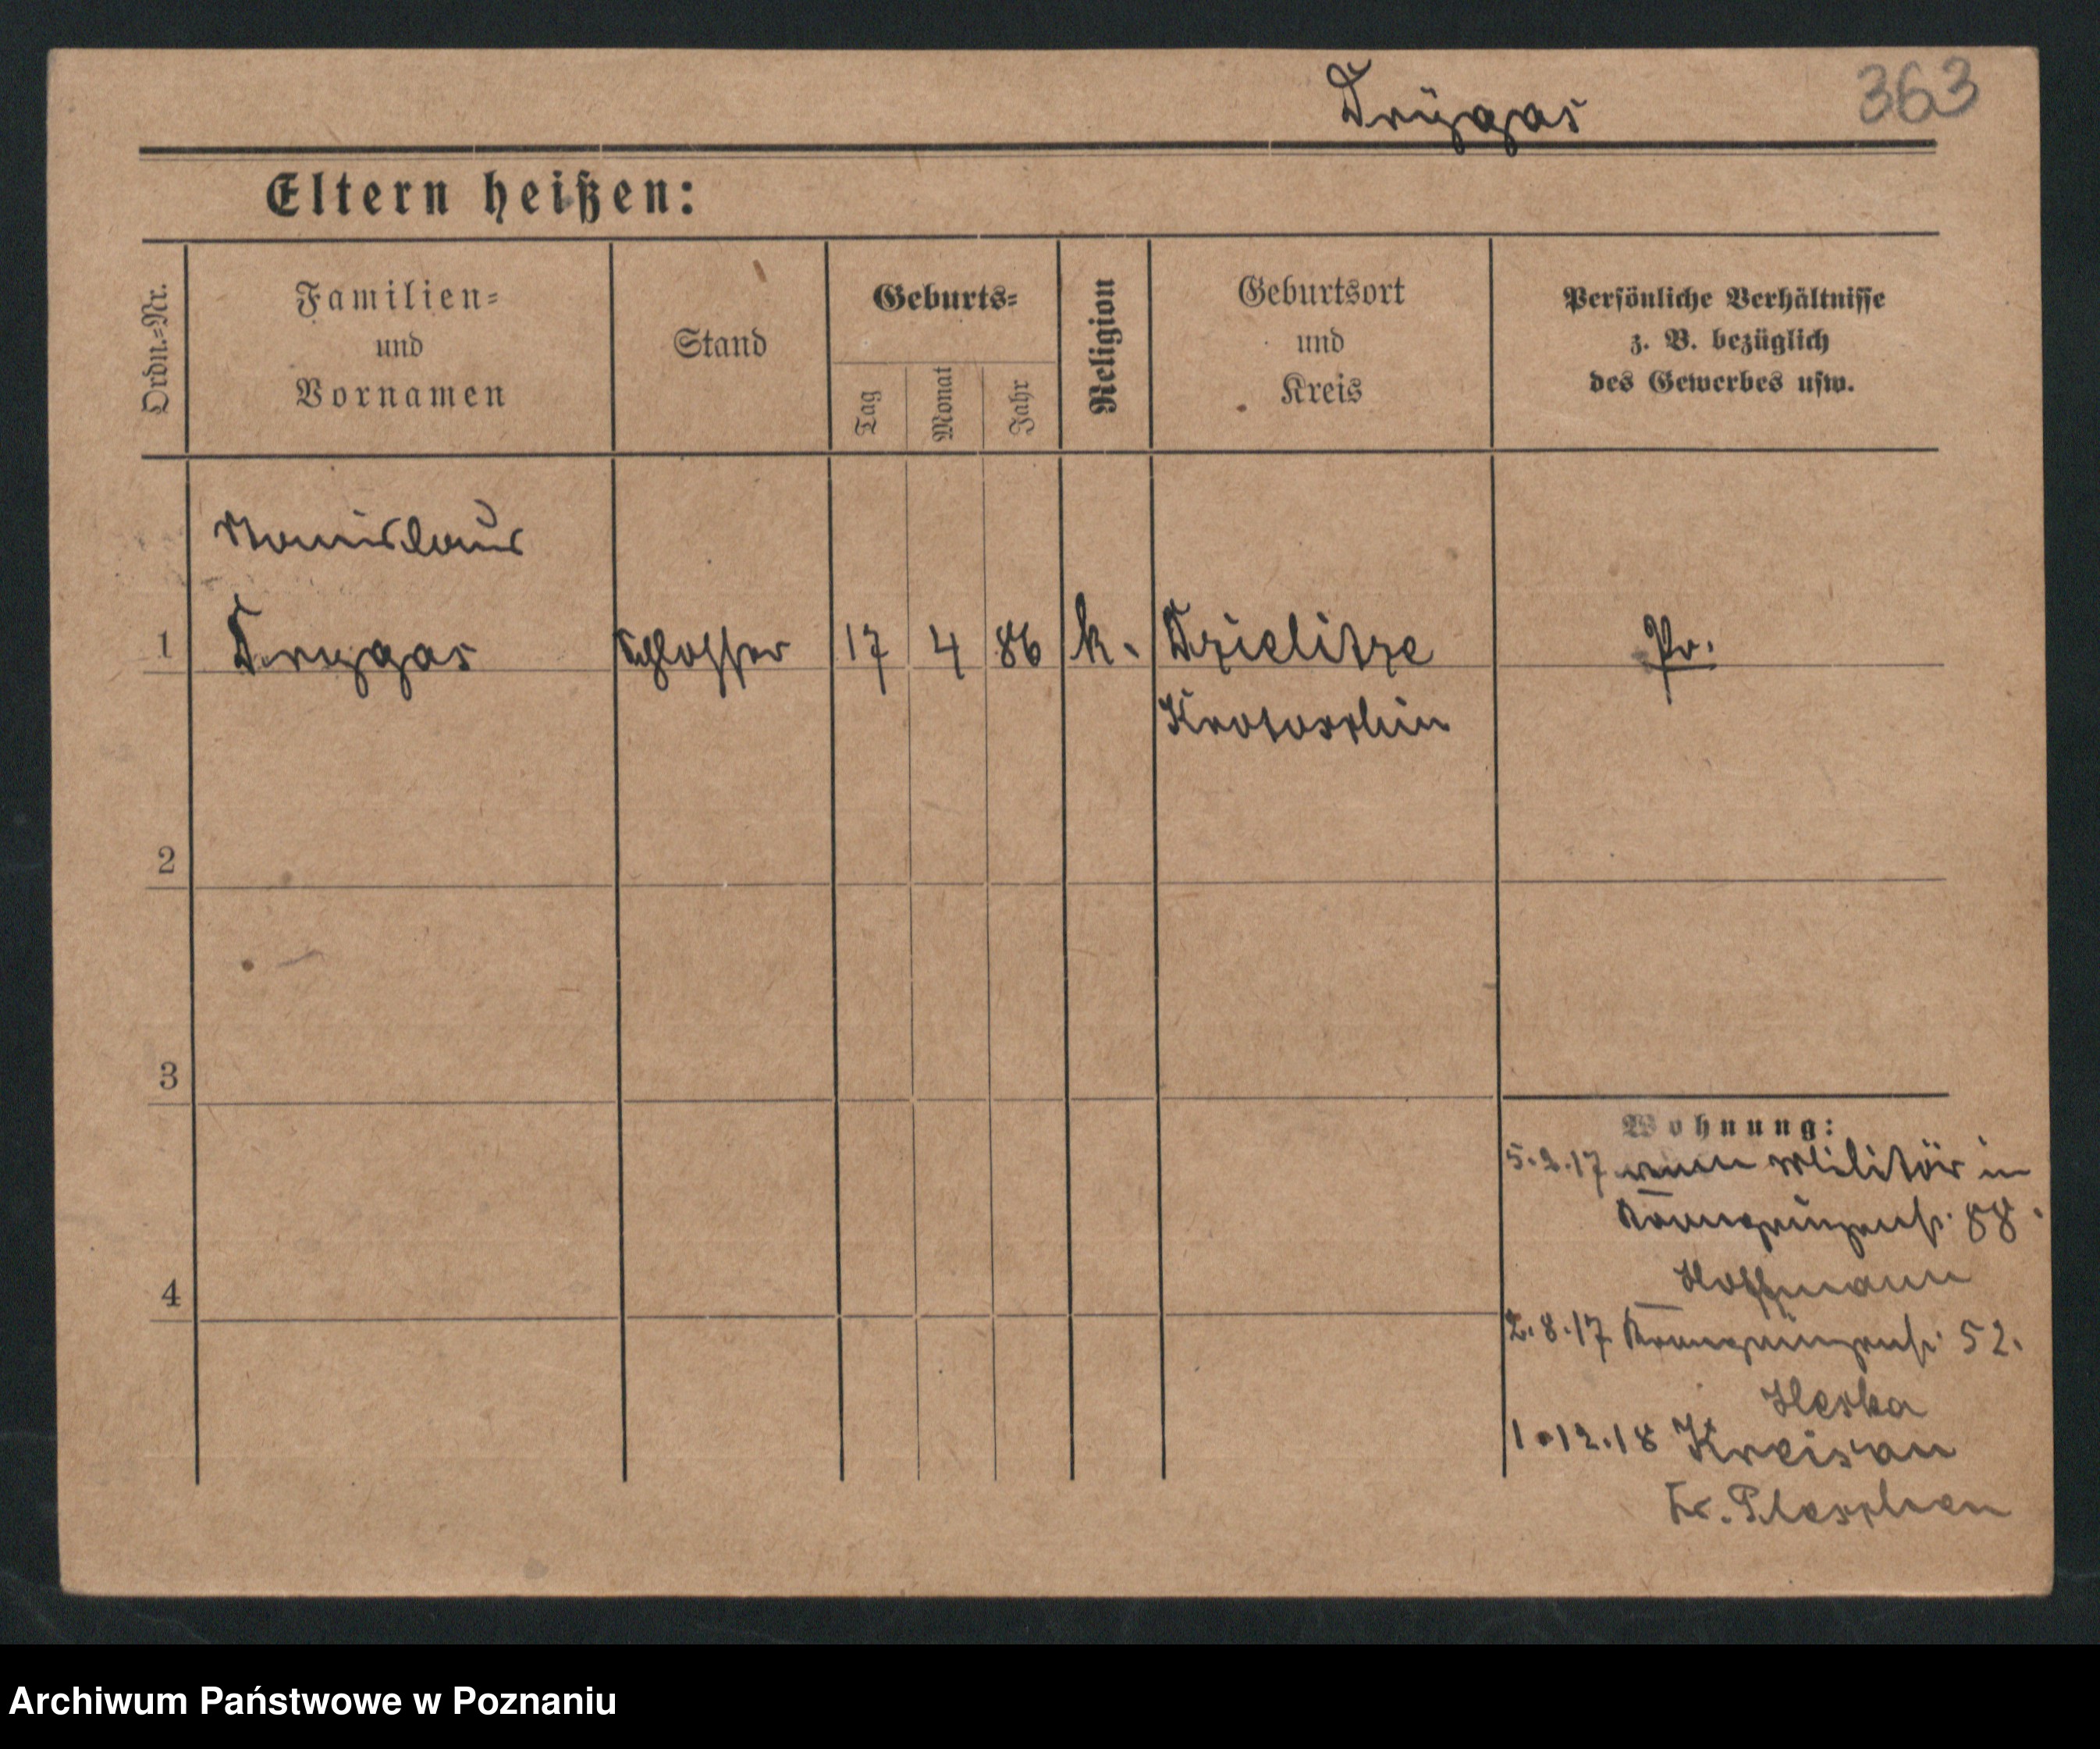 363
Drÿgas
Eltern heißen:
Ordn.=Nr.
Familien=
und
Vornamen
Stand
Geburts=
Tag
Monat
Jahr
Religion
Geburtsort
und
Kreis
Persönliche Verhältnisse
z. B. bezüglich
des Gewerbes usw.
1
Drygas
Schlosser
17
4
86
k.
Dzielitze
Krotoschin
Pr.
2
3
4
Wohnung:
5.2.17 vom Militär in
Kronprinzenstr. 88.
Hoffmann
2.8.17 Kronprinzenstr. 52.
Heska
1.12.18
Kr. Pleschen
Archiwum Państwowe w Poznaniu